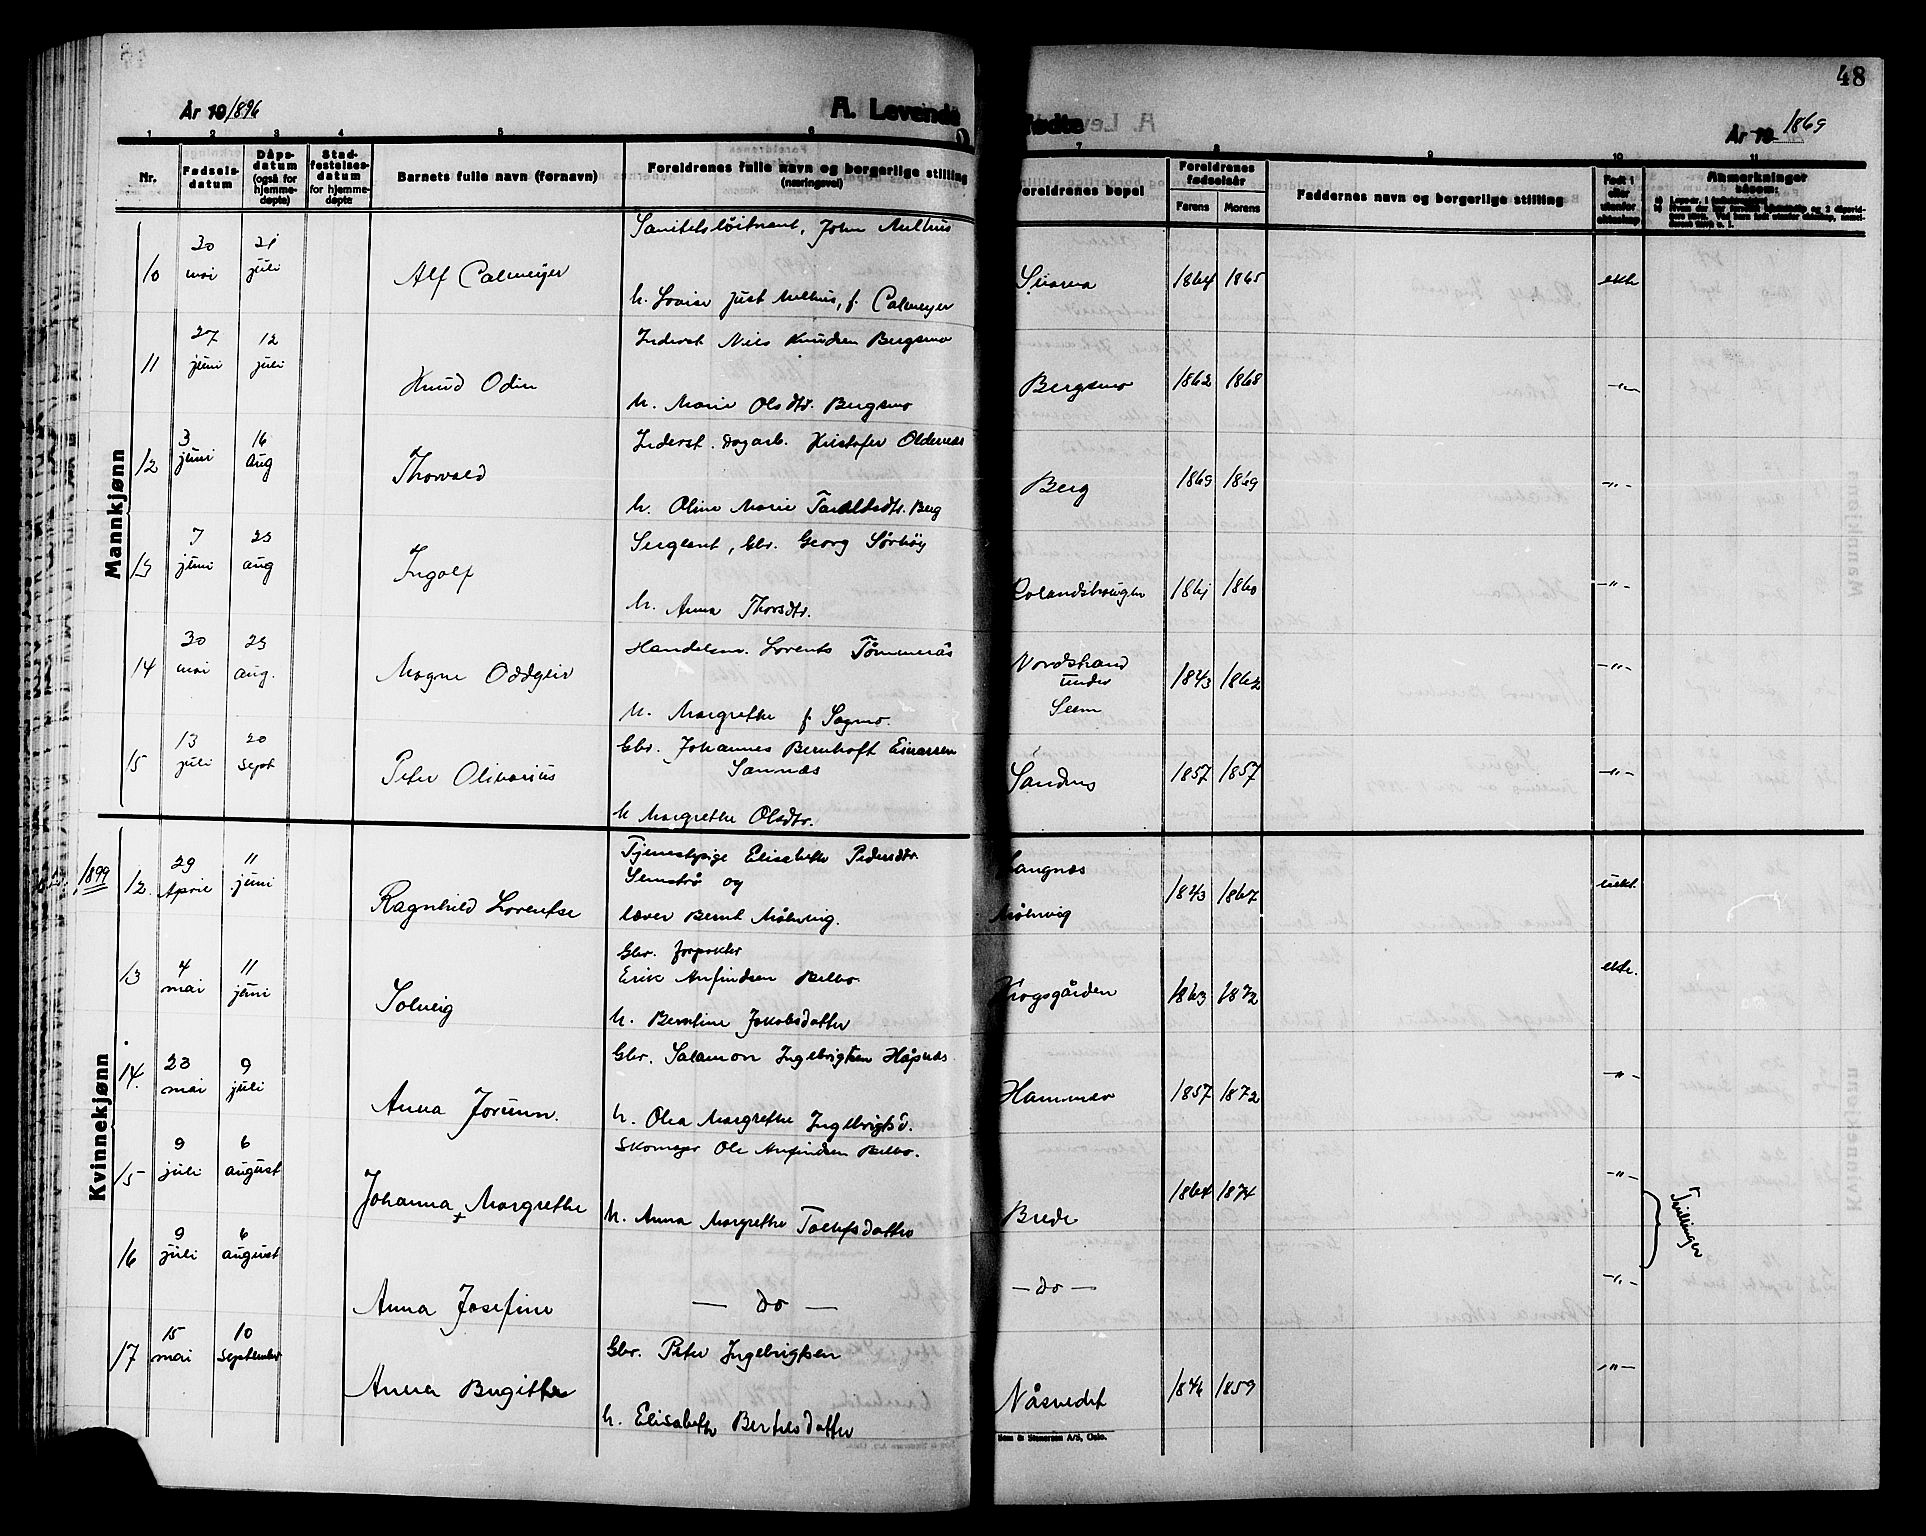 48
År 19 1896
A. Levende
fødte
År 19 1869
1 2 3 4 5 6 7 8 9 10 11
Nr.
Fødsels-datum
Dåps-datum (også for hjemme-døpte)
Stad-festelses-datum for hjemme-døpte
Barnets fulle navn (fornavn)
Foreldrenes fulle navn og borgerlige stilling (næringsvei)
Foreldrenes bopel
Foreldrenes fødselsår
Farens Morens
Faddernes navn og borgerlige stilling
Født i eller utenfor ekteskap
Anmerkninger såsom:
Mannkjønn
10 30 mai 21 juli Alf Calmeyer
Sanitetsløitnant, John Aulhus
h. Lovise Just Aulhus, f. Calmeyer
1864 1865 ekte
11 27 juni 12 juli Knud Odin
Inderst Niels Knudsen Bergsmo
h. Marie Olsdtr. Bergsmo
Bergsmo 1862 1868 -"-
12 3 juni 16 aug Thorvald
Inderst. Dagarb. Kristofer Oldernæs
h. Oline Marie Taraldsdtr. Berg
Berg 1869 1869 -"-
13 7 juni 23 aug Ingolf
Sergeant, Gbr. Georg Sørhøy
h. Anna Thorsdtr.
1861 1860 -"-
14 30 mai 23 aug. Magne Oddgeir
Handelsm. Lorents Tømmerås
h. Margrethe f. Sagmo.
Nordstrand under Seem 1843 1862 -"-
15 13 juli 20 sept Peter Olivarius
Gbr. Johannes Bernhoft Einarsen
Sannæs
h Margrethe Olsdtr.
Sandnes 1857 1857 -"-
Kvinnekjønn
1899
12. 29 April 11 juni Ragnhild Lorentse
Tjenestpige Elisabeth Pedersdtr.
Semstrø og
lærer Bernt Mølnvig.
Langnæs
Mølnvig 1843 1867 uekt.
13 4 mai 11 juni Solveig
Gbr. forpakter
Erik Anfindsen Belbo.
h. Berntine Jakobsdatter
Krogsgården 1863 1872 ekte.
14. 23 mai 9 juli Anna Jorunn.
Gbr. Salamon Ingebrigtsen Håpnæs.
h. Olea Margrethe Ingebrigtsd.
Hammer 1857 1872 -"-
15 9 juli 6 august Johanna Margrethe
+
Skomager Ole Anfindsen Belbo.
h. Anna Margrethe Tollefsdatter
Brede 1864 1874 -"-
Tvillinger
16 9 juli 6 august Anna Josefine
— Do —
— Do — -"-
17 15 mai 10 September Anna Birgitte
Gbr. Peter Ingebrigtsen
h. Elisabeth Bertelsdatter
Nåsvedet 1846 1859 -"-
Sem & Stenersen A/S, Oslo.